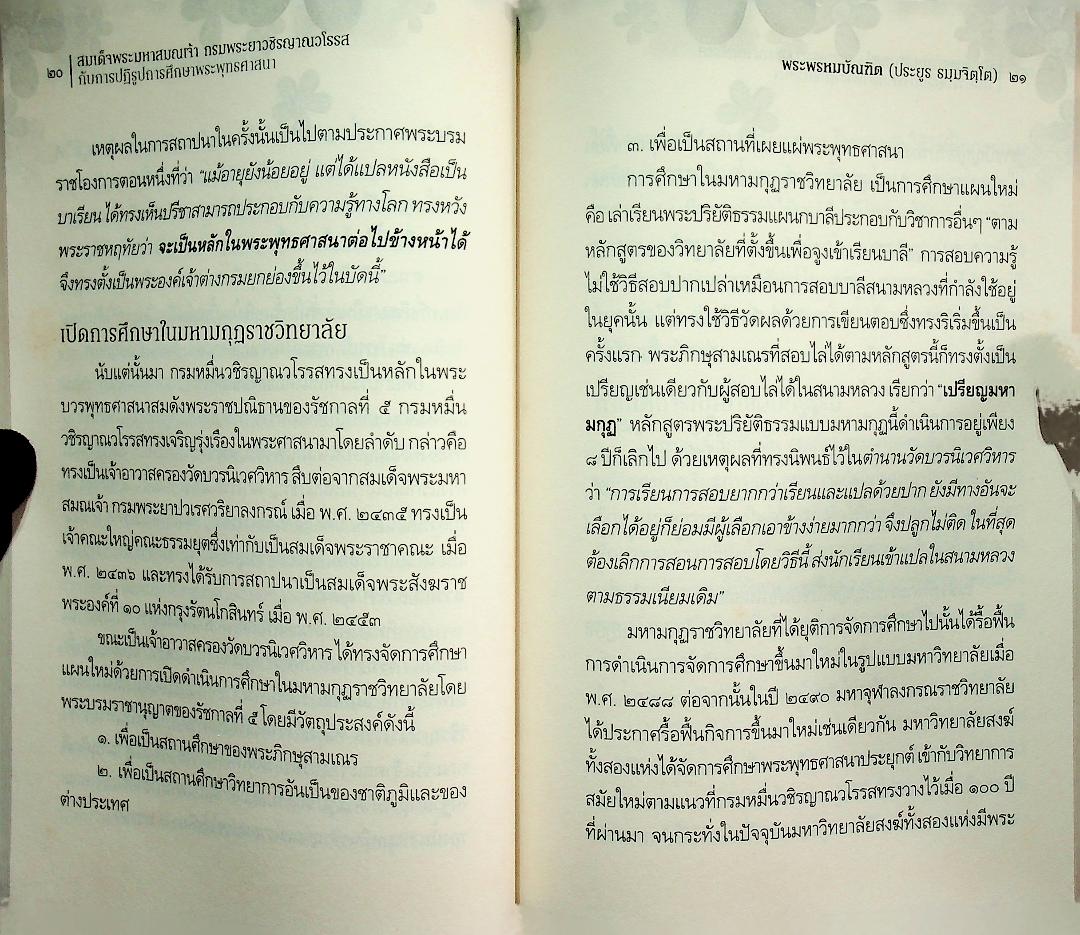 ๒๐ สมเด็จพระมหาสมณเจ้า กรมพระยาวชิรญาณวโรรส
กับการปฏิรูปการศึกษาพระพุทธศาสนา
เหตุผลในการสถาปนาในครั้งนั้นเป็นไปตามประกาศพระบรม
ราชโองการตอนหนึ่งที่ว่า “แม้อายุยังน้อยอยู่ แต่ได้แปลหนังสือเป็น
บาเรียน ได้ทรงเห็นปรีชาสามารถประกอบกับความรู้ทางโลก ทรงหวัง
พระราชหฤทัยว่า จะเป็นหลักในพระพุทธศาสนาต่อไปข้างหน้าได้
จึงทรงตั้งเป็นพระองค์เจ้าต่างกรมยกย่องขึ้นไว้ในบัดนี้”
เปิดการศึกษาในมหามกุฏราชวิทยาลัย
นับแต่นั้นมา กรมหมื่นวชิรญาณวโรรสทรงเป็นหลักในพระ
บวรพุทธศาสนาสมดังพระราชปณิธานของรัชกาลที่ ๕ กรมหมื่น
วชิรญาณวโรรสทรงเจริญรุ่งเรืองในพระศาสนามาโดยลำดับ กล่าวคือ
ทรงเป็นเจ้าอาวาสครองวัดบวรนิเวศวิหาร สืบต่อจากสมเด็จพระมหา
สมณเจ้า กรมพระยาปวเรศวริยาลงกรณ์ เมื่อ พ.ศ. ๒๔๓๕ ทรงเป็น
เจ้าคณะใหญ่คณะธรรมยุตซึ่งเท่ากับเป็นสมเด็จพระราชาคณะ เมื่อ
พ.ศ. ๒๔๓๖ และทรงได้รับการสถาปนาเป็นสมเด็จพระสังฆราช
พระองค์ที่ ๑๐ แห่งกรุงรัตนโกสินทร์ เมื่อ พ.ศ. ๒๔๕๓
ขณะเป็นเจ้าอาวาสครองวัดบวรนิเวศวิหาร ได้ทรงจัดการศึกษา
แผนใหม่ด้วยการเปิดดำเนินการศึกษาในมหามกุฏราชวิทยาลัยโดย
พระบรมราชานุญาตของรัชกาลที่ ๕ โดยมีวัตถุประสงค์ดังนี้
๑. เพื่อเป็นสถานศึกษาของพระภิกษุสามเณร
๒. เพื่อเป็นสถานศึกษาวิทยาการอันเป็นของชาติภูมิและของ
ต่างประเทศ
พระพรหมบัณฑิต (ประยูร ธมฺมจิตฺโต) ๒๑
๓. เพื่อเป็นสถานที่เผยแผ่พระพุทธศาสนา
การศึกษาในมหามกุฏราชวิทยาลัย เป็นการศึกษาแผนใหม่
คือ เล่าเรียนพระปริยัติธรรมแผนกบาลีประกอบกับวิชาการอื่นๆ “ตาม
หลักสูตรของวิทยาลัยที่ตั้งขึ้นเพื่อจูงเข้าเรียนบาลี” การสอบความรู้
ไม่ใช้วิธีสอบปากเปล่าเหมือนการสอบบาลีสนามหลวงที่กำลังใช้อยู่
ในยุคนั้น แต่ทรงใช้วิธีวัดผลด้วยการเขียนตอบซึ่งทรงริเริ่มขึ้นเป็น
ครั้งแรก พระภิกษุสามเณรที่สอบไล่ได้ตามหลักสูตรนี้ก็ทรงตั้งเป็น
เปรียญเช่นเดียวกับผู้สอบไล่ได้ในสนามหลวง เรียกว่า “เปรียญมหา
มกุฏ” หลักสูตรพระปริยัติธรรมแบบมหามกุฏนี้ดำเนินการอยู่เพียง
๘ ปีก็เลิกไป ด้วยเหตุผลที่ทรงนิพนธ์ไว้ในตำนานวัดบวรนิเวศวิหาร
ว่า “การเรียนการสอบยากกว่าเรียนและแปลด้วยปาก ยังมีทางอันจะ
เลือกได้อยู่ก็ย่อมมีผู้เลือกเอาข้างง่ายมากกว่า จึงปลูกไม่ติด ในที่สุด
ต้องเลิกการสอนการสอบโดยวิธีนี้ ส่งนักเรียนเข้าแปลในสนามหลวง
ตามธรรมเนียมเดิม”
มหามกุฏราชวิทยาลัยที่ได้ยุติการจัดการศึกษาไปนั้นได้รื้อฟื้น
การดำเนินการจัดการศึกษาขึ้นมาใหม่ในรูปแบบมหาวิทยาลัยเมื่อ
พ.ศ. ๒๔๘๘ ต่อจากนั้นในปี ๒๔๙๐ มหาจุฬาลงกรณราชวิทยาลัย
ได้ประกาศรื้อฟื้นกิจการขึ้นมาใหม่เช่นเดียวกัน มหาวิทยาลัยสงฆ์
ทั้งสองแห่งได้จัดการศึกษาพระพุทธศาสนาประยุกต์ เข้ากับวิทยาการ
สมัยใหม่ตามแนวที่กรมหมื่นวชิรญาณวโรรสทรงวางไว้เมื่อ ๑๐๐ ปี
ที่ผ่านมา จนกระทั่งในปัจจุบันมหาวิทยาลัยสงฆ์ทั้งสองแห่งมีพระ